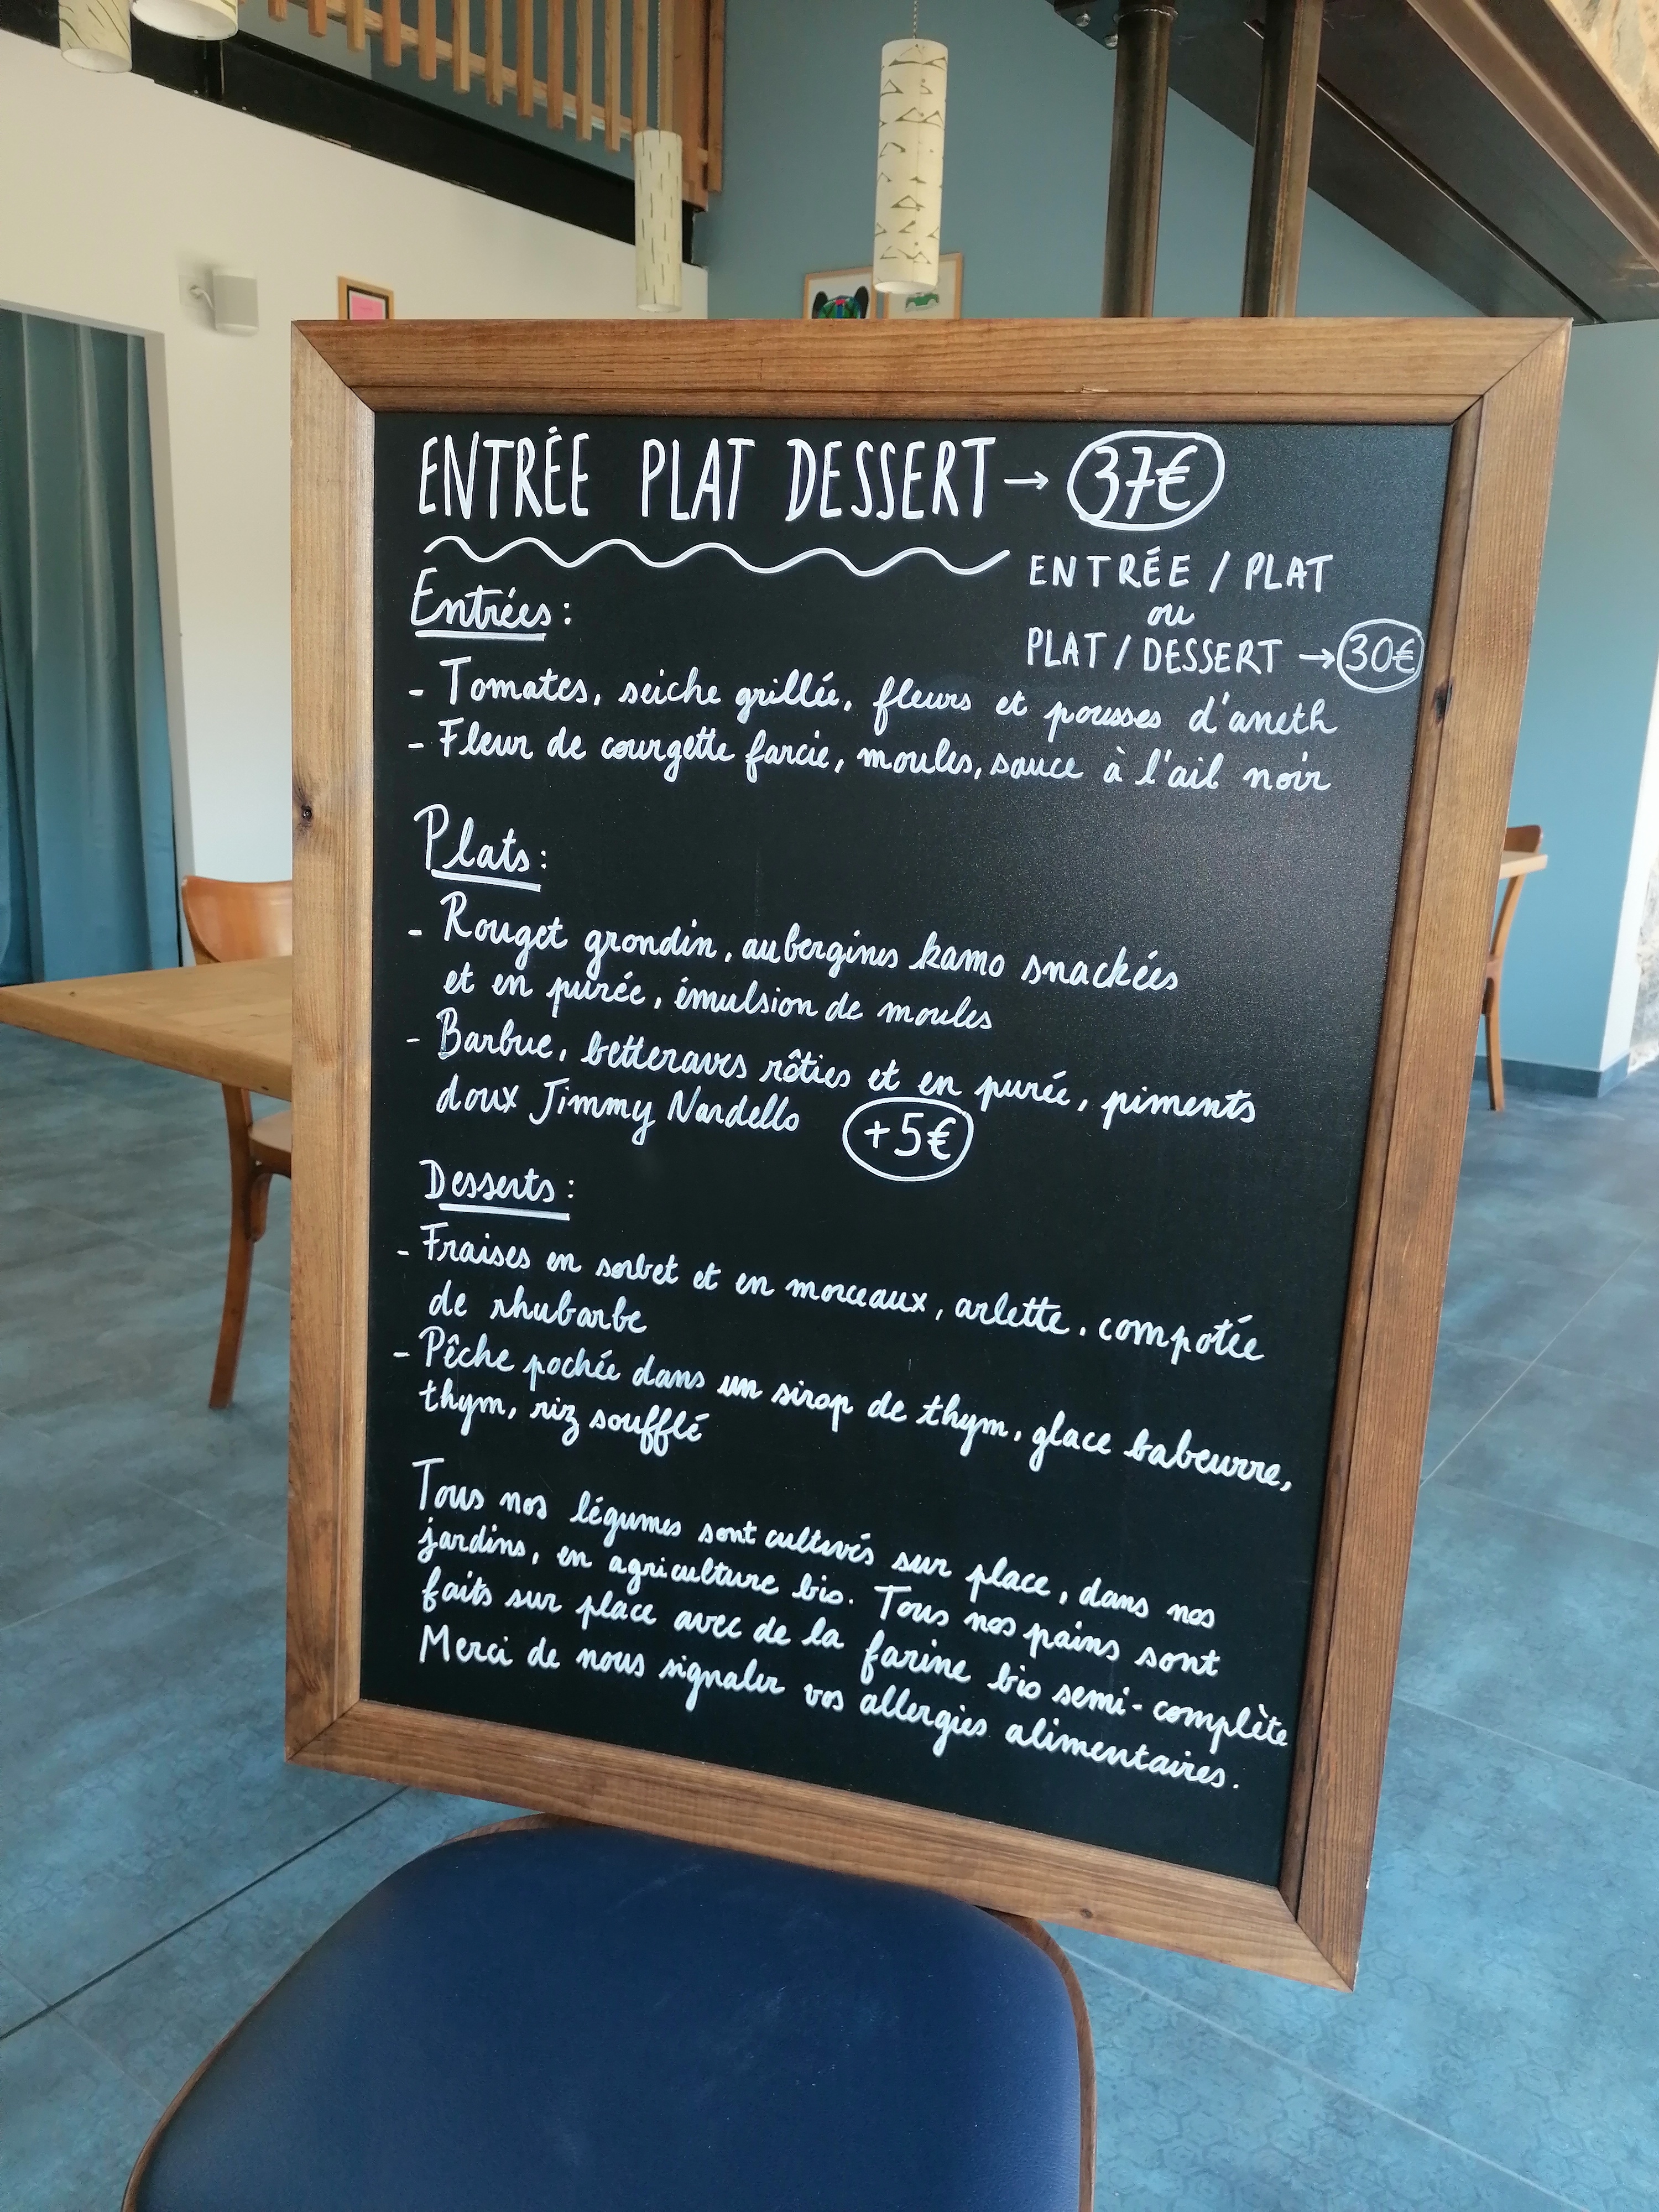 ENTRÉE PLAT DESSERT → 37€
ENTRÉE / PLAT
ou
PLAT / DESSERT → 30€
Entrées :
- Tomates, seiche grillée, fleurs et pousses d'aneth
- Fleur de courgette farcie, moules, sauce à l'ail noir
Plats :
- Rouget grondin, aubergines kamo snackées
et en purée, émulsion de moules
- Barbue, betteraves rôties et en purée, piments
doux Jimmy Nardello +5€
Desserts :
- Fraises en sorbet et en morceaux, arlette, compotée
de rhubarbe
- Pêche pochée dans un sirop de thym, glace babeurre,
thym, riz soufflé
Tous nos légumes sont cultivés sur place, dans nos
jardins, en agriculture bio. Tous nos pains sont
faits sur place avec de la farine bio semi-complète
Merci de nous signaler vos allergies alimentaires.